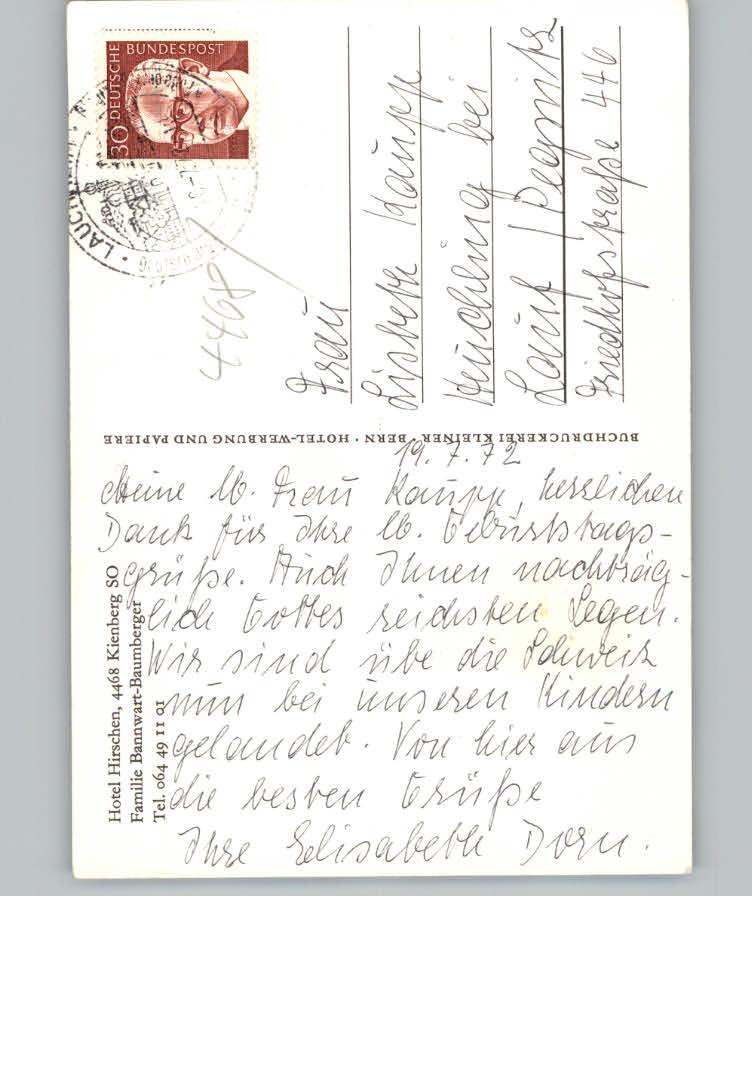 DEUTSCHE BUNDESPOST
30
LAUCH
4468
Frau
Lisbeth Kaupp
Heuchling bei
Lauf / Pegnitz
Friedhofstraße 446
BUCHDRUCKEREI KLEINER · BERN · HOTEL-WERBUNG UND PAPIERE
19. 7. 72
Meine lb. Frau Kaupp, herzlichen
Dank für Ihre lb. Geburtstags-
grüße. Auch Ihnen nachträg-
lich Gottes reichsten Segen.
Wir sind übe die Schweiz
nun bei unseren Kindern
gelandet. Von hier aus
die besten Grüße
Ihre Elisabeth Dorn.
Hotel Hirschen, 4468 Kienberg SO
Familie Bannwart-Baumberger
Tel. 064 49 11 01